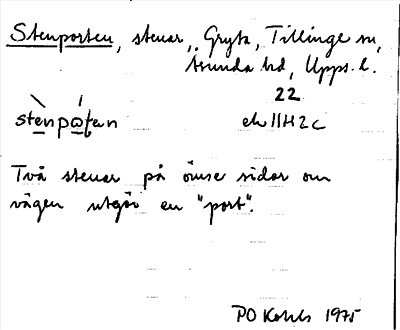 Stenporten, stenar, Gryta, Tillinge sn,
Trunda hd, Upps. l.
22
stenpåtan ek 11H2c
Två stenar på ömse sidor om
vägen utgör en "port".
PO Kohls 1975